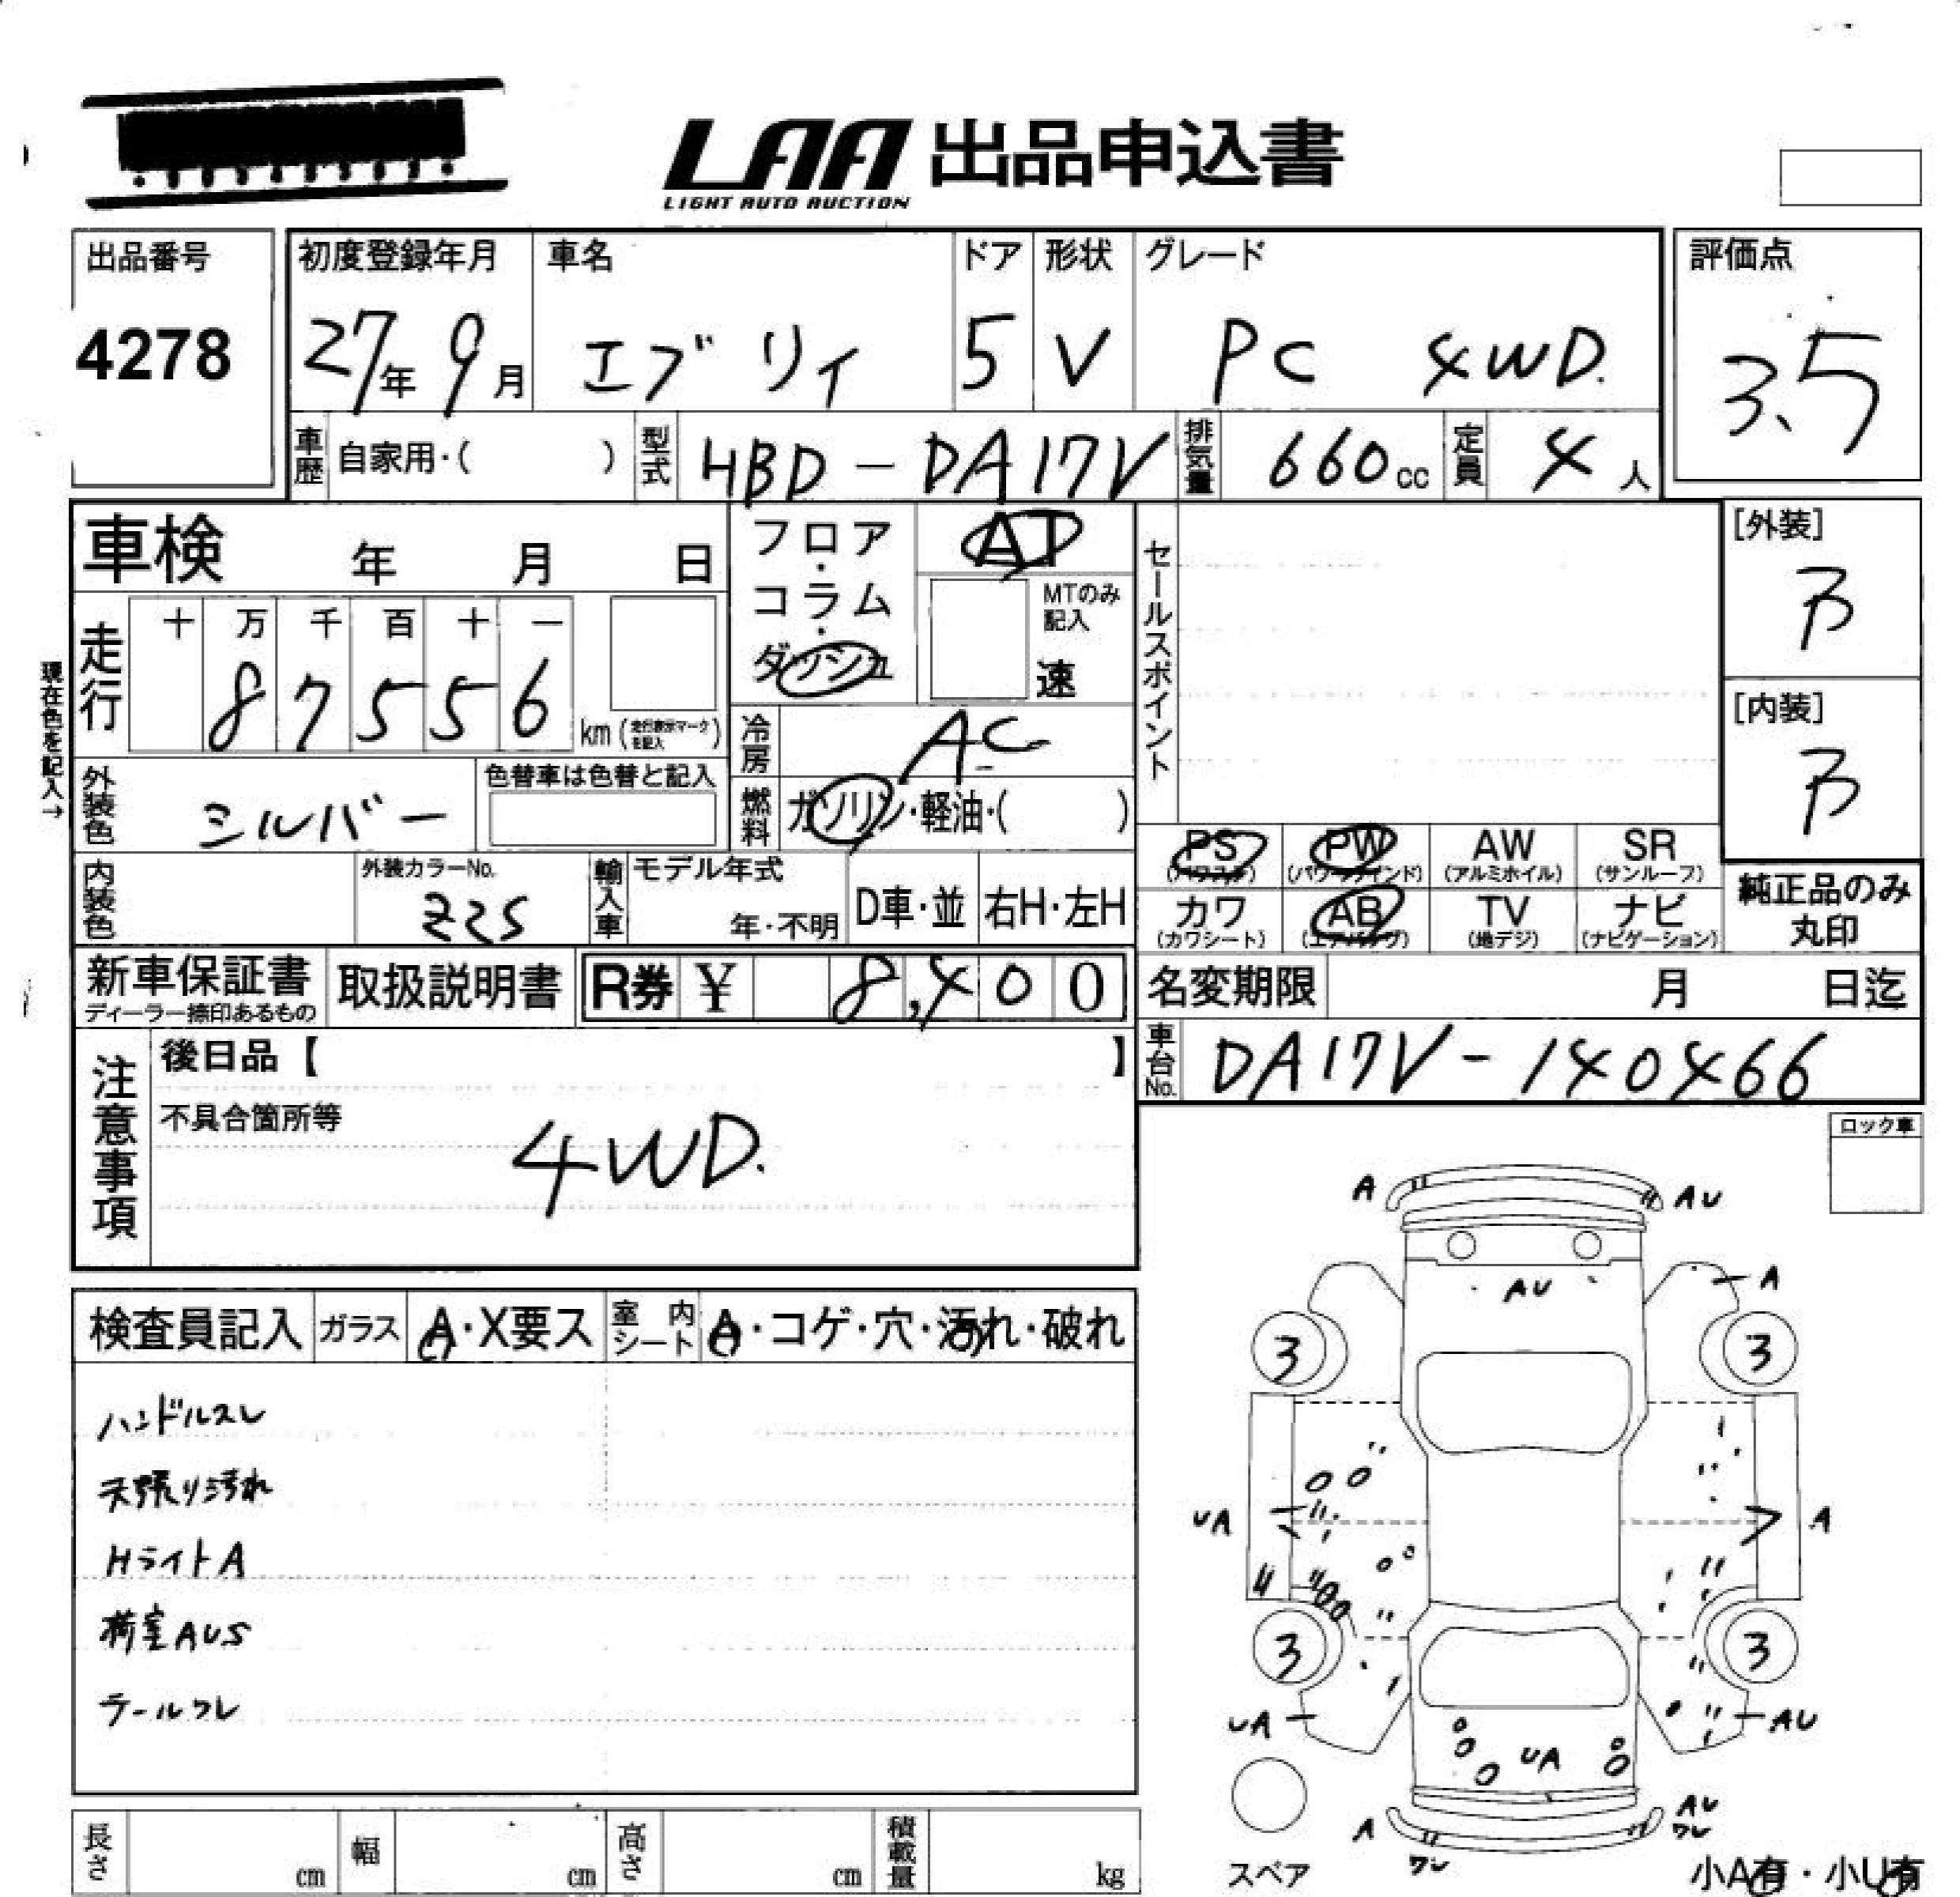 LAA 出品申込書
LIGHT AUTO AUCTION
出品番号
4278
初度登録年月
27年 9月
車名
エブリィ
ドア
5
形状
V
グレード
PC 4WD.
評価点
3.5
車歴
自家用・( )
型式
HBD-DA17V
排気量
660cc
定員
4人
車検 年 月 日
フロア・コラム・ダッシュ
AT
MTのみ記入
速
セールスポイント
[外装]
B
[内装]
B
現在色を記入→
走行
十 万 千 百 十 一
8 7 5 5 6
km (走行表示マークを記入)
冷房
AC
外装色
シルバー
色替車は色替と記入
燃料
ガソリン・軽油・( )
PS (パワステ)
PW (パワーウインド)
AW (アルミホイル)
SR (サンルーフ)
カワ (カワシート)
AB (エアバッグ)
TV (地デジ)
ナビ (ナビゲーション)
純正品のみ丸印
内装色
外装カラーNo.
Z2S
輸入車
モデル年式
年・不明
D車・並
右H・左H
新車保証書
ディーラー捺印あるもの
取扱説明書
R券 ¥ 8,400
名変期限 月 日迄
注意事項
後日品【 】
不具合箇所等
4WD.
車台No.
DA17V-140466
ロック車
検査員記入
ガラス
A・X要ス
室内シート
A・コゲ・穴・汚れ・破れ
ハンドルスレ
天張り汚れ
HライトA
荷室AUS
テールワレ
A
AU
AU
A
3
3
UA
A
3
3
UA
AU
UA
A
AU
ワレ
ワレ
スペア
小A有・小U有
長さ cm
幅 cm
高さ cm
積載量 kg